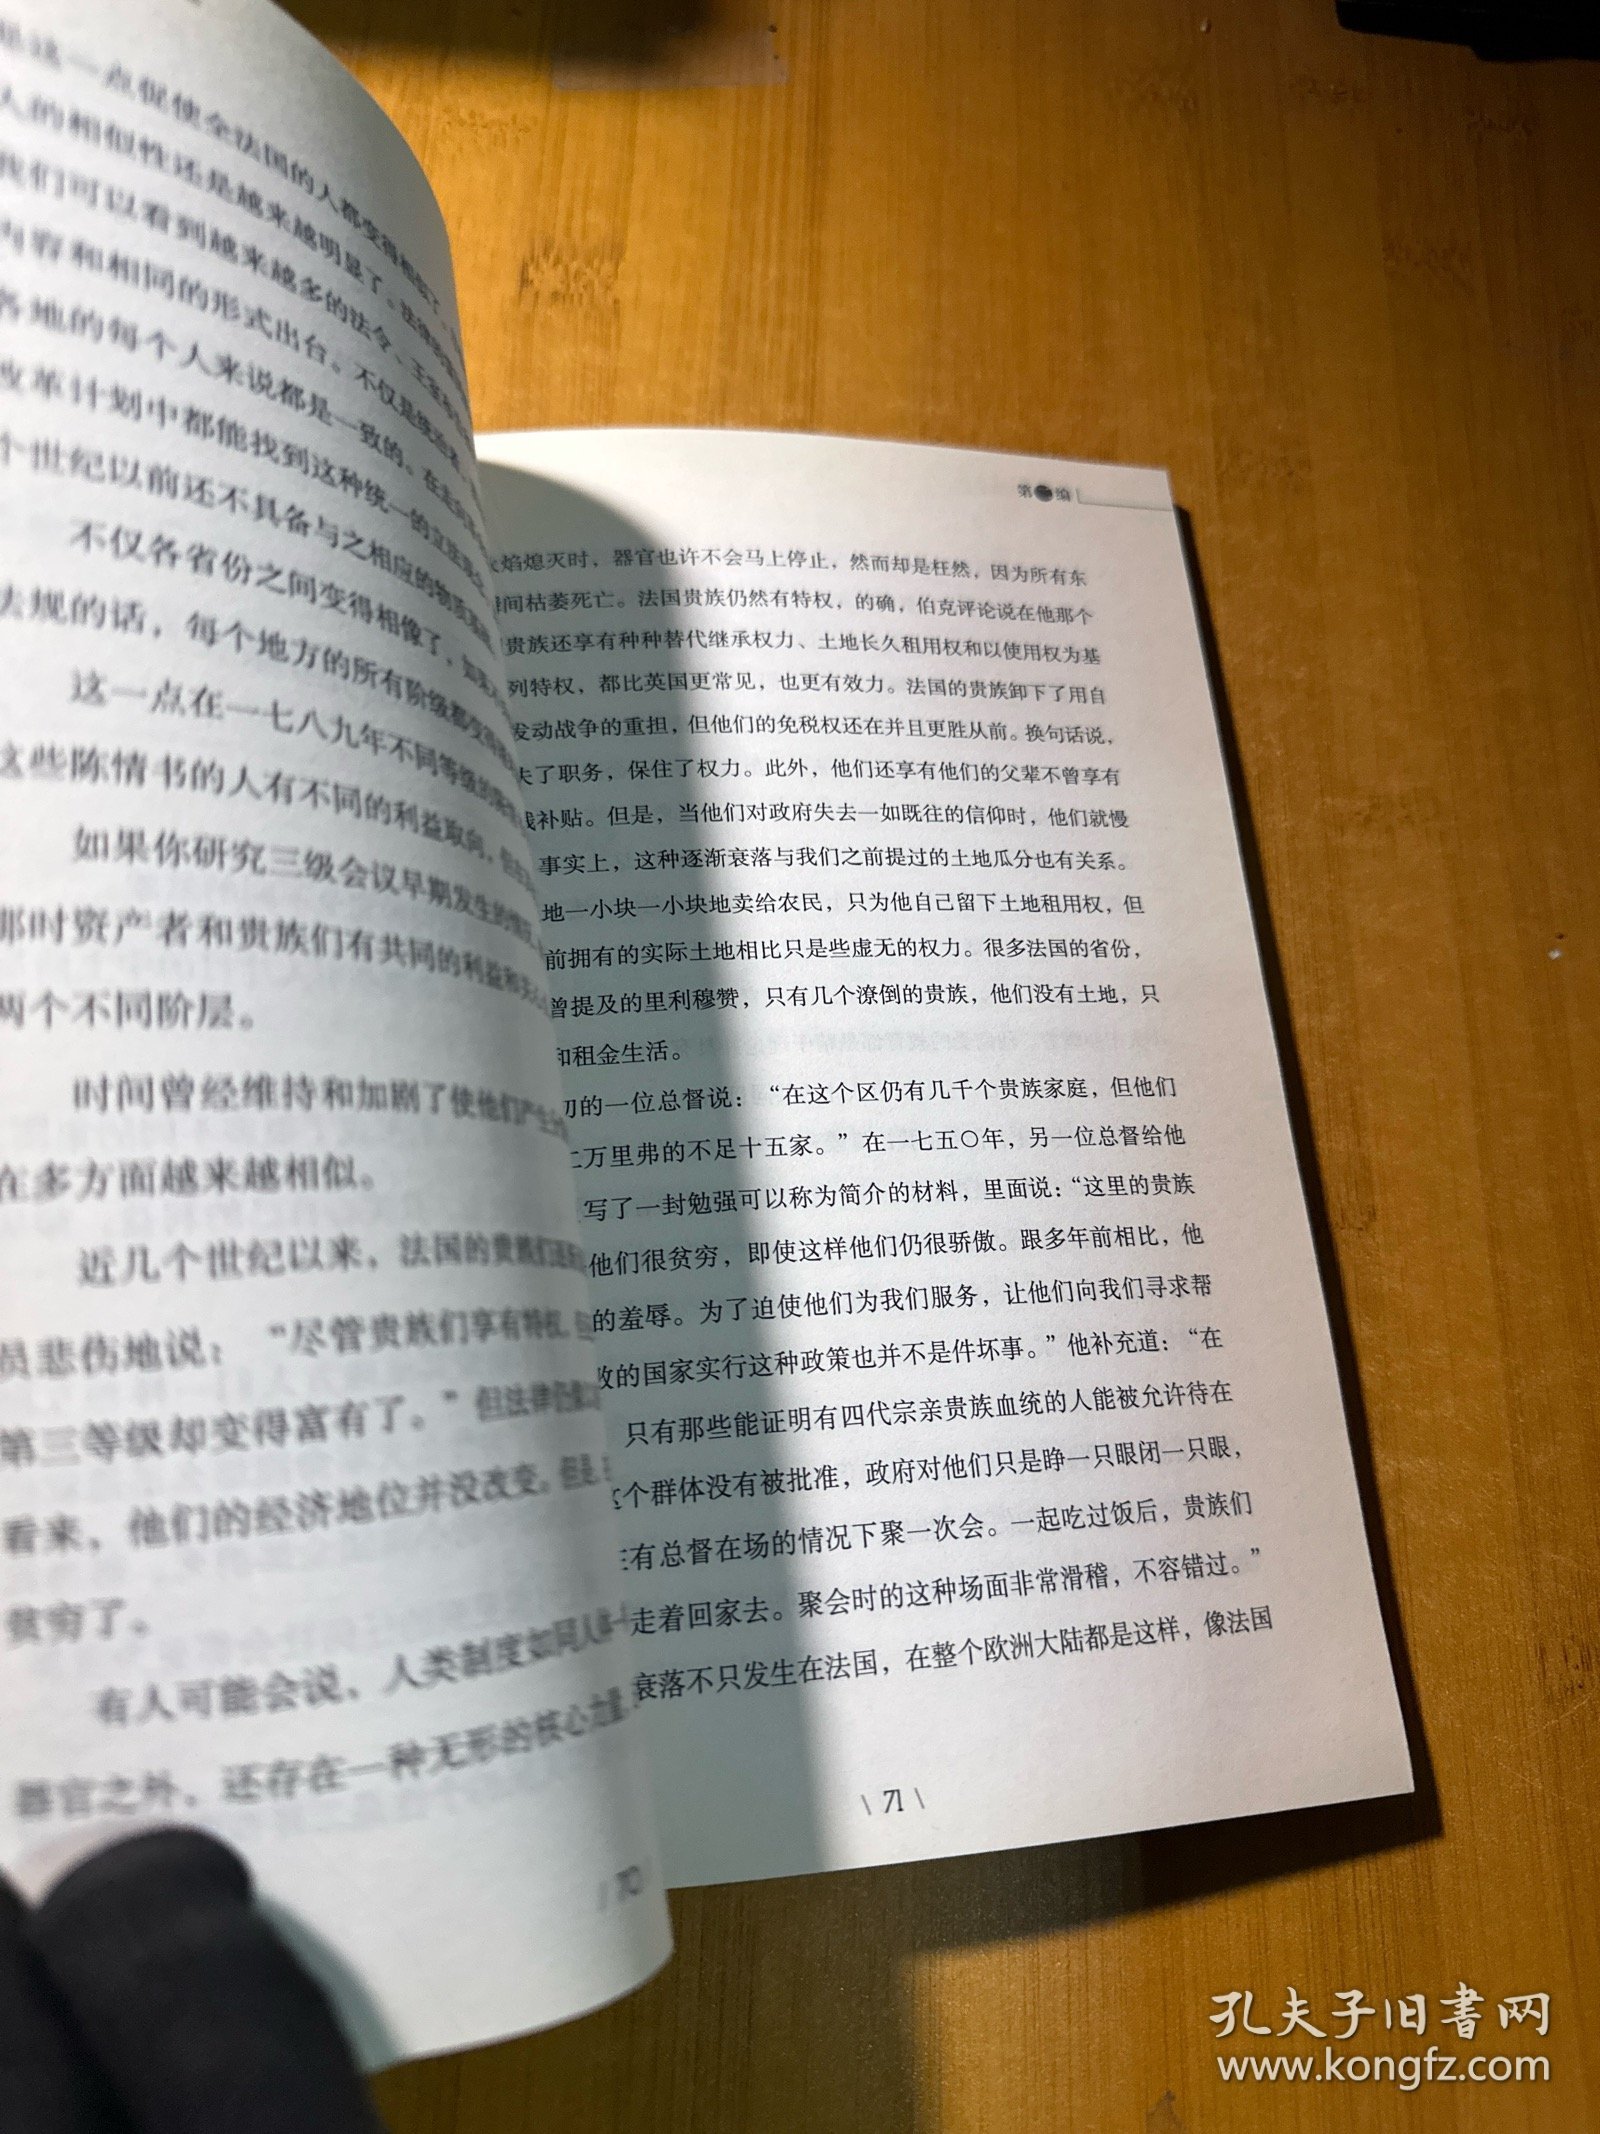 是这一点促使全法国的人都变得相似了。
人的相似性还是越来越明显了。法律的
我们可以看到越来越多的法令、王室
内容和相同的形式出台。不仅是统治者
各地的每个人来说都是一致的。在
改革计划中都能找到这种统一的立法
个世纪以前还不具备与之相应的物质
不仅各省份之间变得相像了，如果
法规的话，每个地方的所有阶级都变得
这一点在一七八九年不同等级的陈情
这些陈情书的人有不同的利益取向，但
如果你研究三级会议早期发生的情况
那时资产者和贵族们有共同的利益和
两个不同阶层。
时间曾经维持和加剧了使他们产生
在多方面越来越相似。
近几个世纪以来，法国的贵族们
员悲伤地说：“尽管贵族们享有特权，
第三等级却变得富有了。”但法律
看来，他们的经济地位并没改变。但是
贫穷了。
有人可能会说，人类制度如同人体一
器官之外，还存在一种无形的核心力量
70
第二编
火焰熄灭时，器官也许不会马上停止，然而却是枉然，因为所有东
瞬间枯萎死亡。法国贵族仍然有特权，的确，伯克评论说在他那个
贵族还享有种种替代继承权力、土地长久租用权和以使用权为基
列特权，都比英国更常见，也更有效力。法国的贵族卸下了用自
发动战争的重担，但他们的免税权还在并且更胜从前。换句话说，
失了职务，保住了权力。此外，他们还享有他们的父辈不曾享有
钱补贴。但是，当他们对政府失去一如既往的信仰时，他们就慢
事实上，这种逐渐衰落与我们之前提过的土地瓜分也有关系。
地一小块一小块地卖给农民，只为他自己留下土地租用权，但
前拥有的实际土地相比只是些虚无的权力。很多法国的省份，
曾提及的里利穆赞，只有几个潦倒的贵族，他们没有土地，只
和租金生活。
初的一位总督说：“在这个区仍有几千个贵族家庭，但他们
二万里弗的不足十五家。”在一七五〇年，另一位总督给他
写了一封勉强可以称为简介的材料，里面说：“这里的贵族
他们很贫穷，即使这样他们仍很骄傲。跟多年前相比，他
的羞辱。为了迫使他们为我们服务，让他们向我们寻求帮
的国家实行这种政策也并不是件坏事。”他补充道：“在
只有那些能证明有四代宗亲贵族血统的人能被允许待在
这个群体没有被批准，政府对他们只是睁一只眼闭一只眼，
在有总督在场的情况下聚一次会。一起吃过饭后，贵族们
走着回家去。聚会时的这种场面非常滑稽，不容错过。”
衰落不只发生在法国，在整个欧洲大陆都是这样，像法国
\ 71 \
孔夫子旧书网
www.kongfz.com